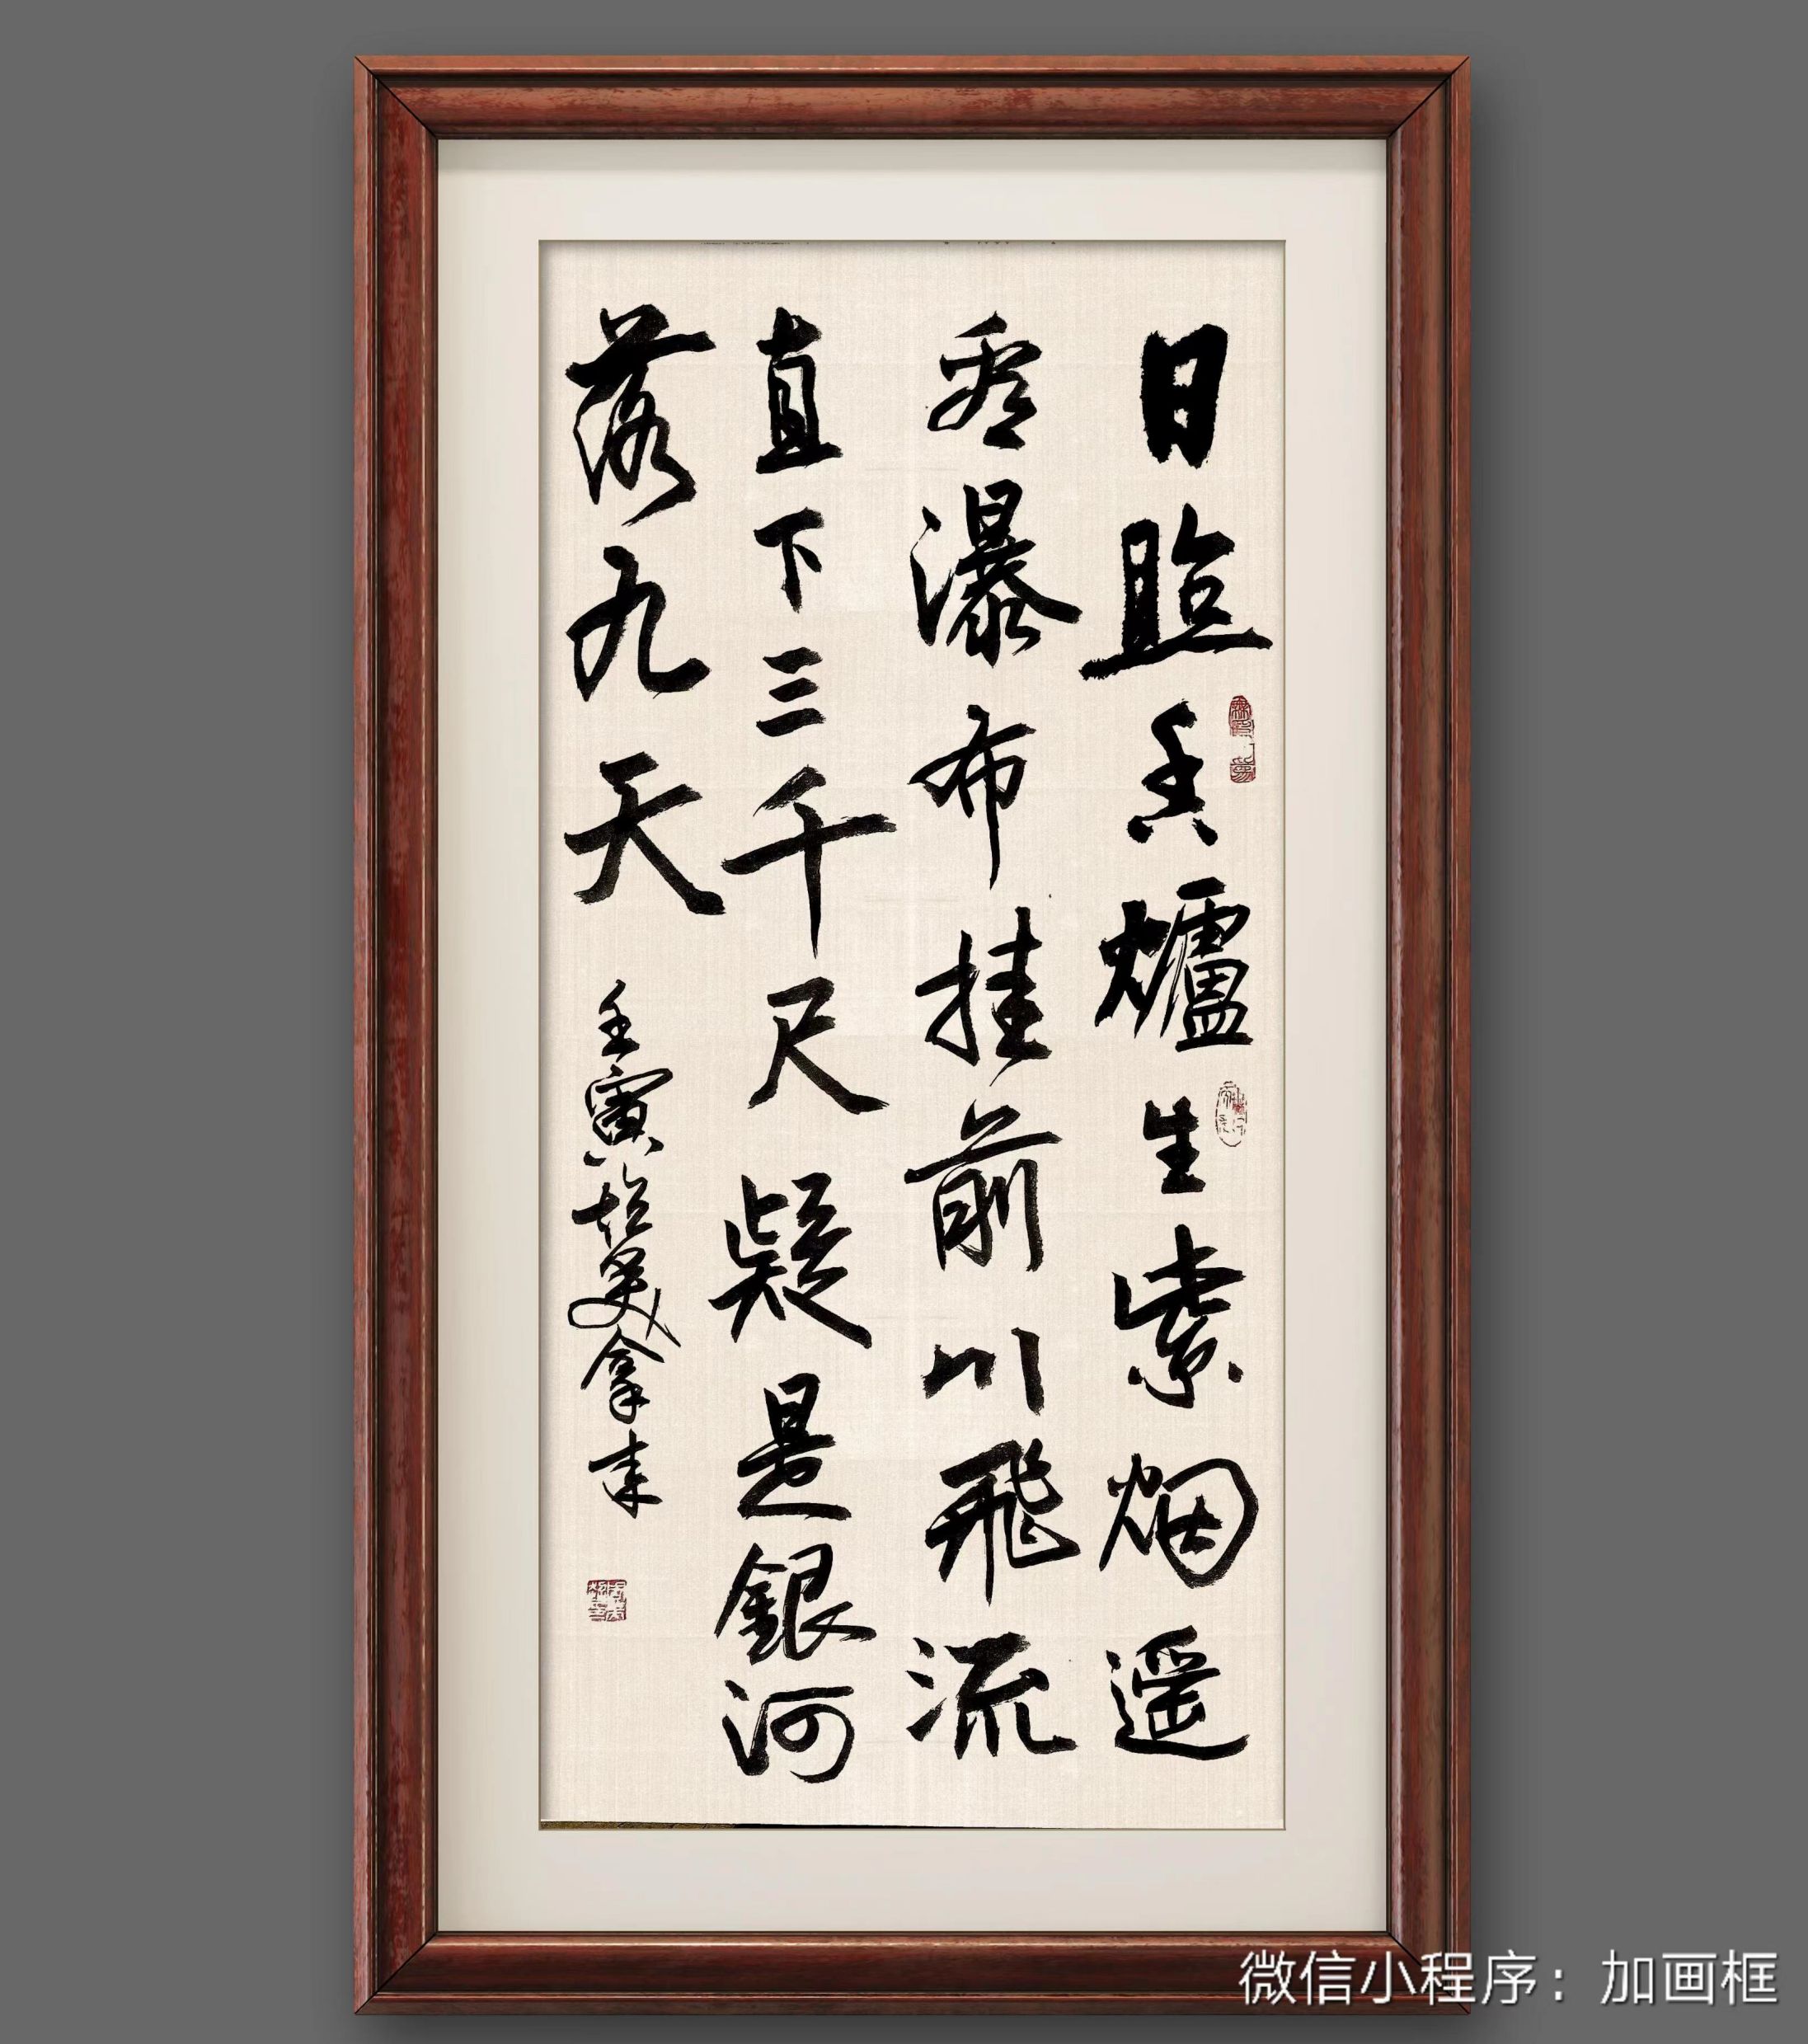 日照香爐生紫烟遥
看瀑布挂前川飛流
直下三千尺疑是銀河
落九天
壬寅
微信小程序：加画框